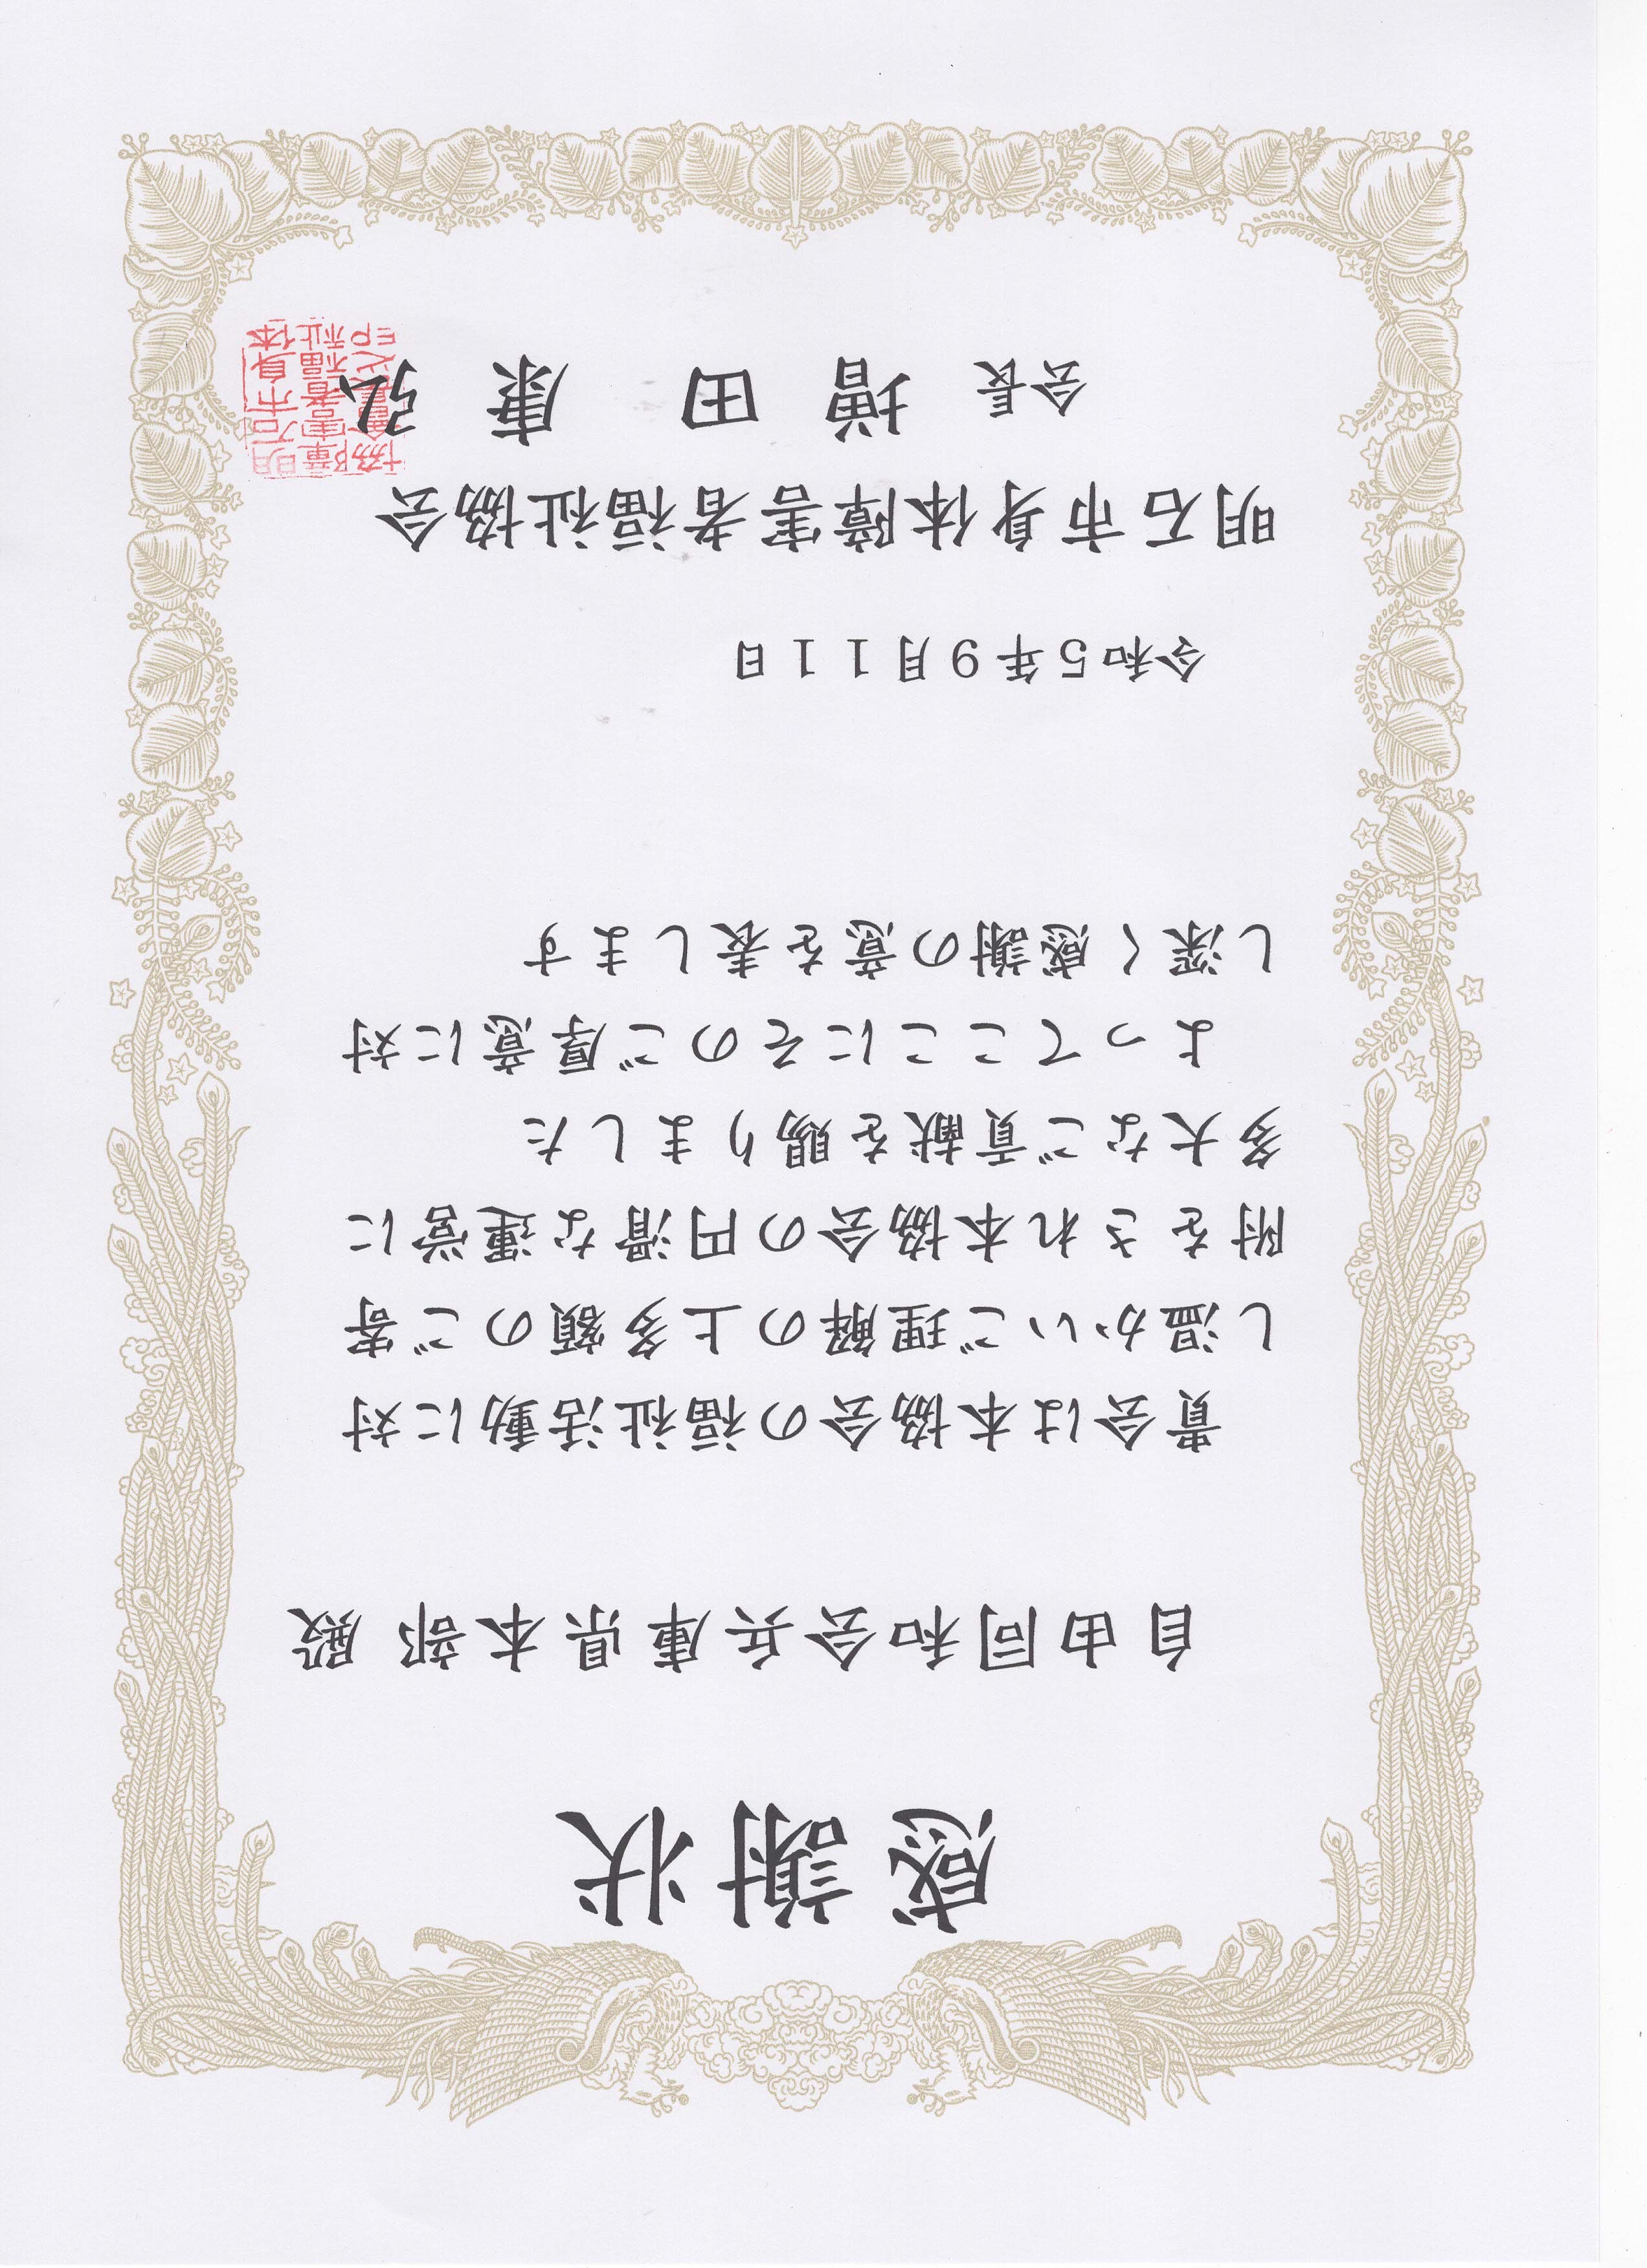 感謝状
自由同和会兵庫県本部 殿
貴会は本協会の福祉活動に対
し温かいご理解の上多額のご寄
附をされ本協会の円滑な運営に
多大なご貢献を賜りました
よってここにそのご厚意に対
し深く感謝の意を表します
令和5年9月11日
明石市身体障害者福祉協会
会長 増田 康弘
明石市身体
障害者福祉
協會長之印